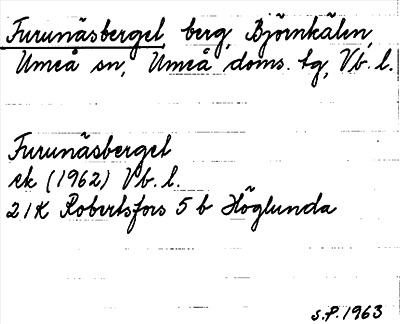 Furunäsberget, berg, Björnkälen,
Umeå sn, Umeå doms. tg, Vb. l.
Furunäsberget
ek (1962) Vb. l.
21K Robertsfors 5 b Höglunda
S.P. 1963